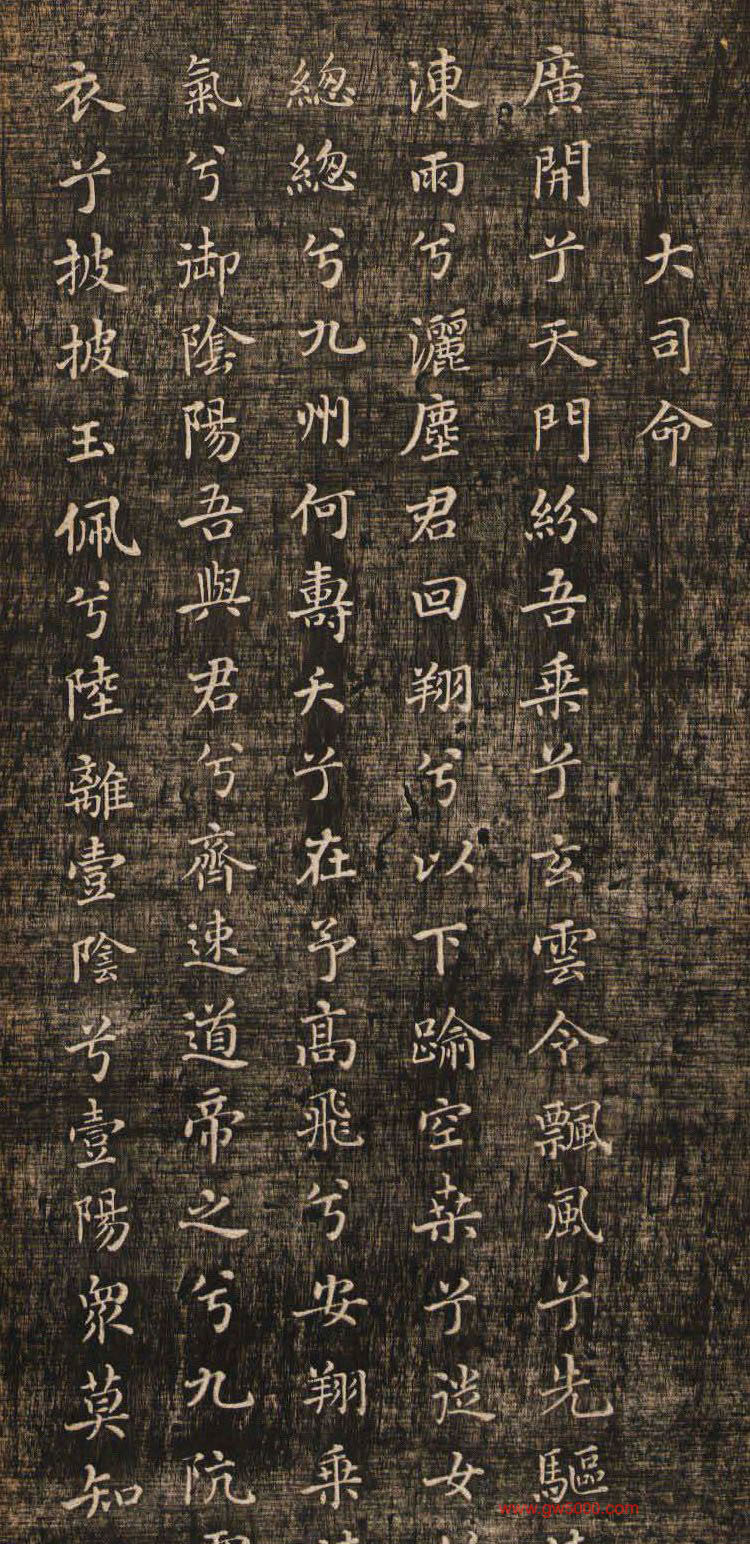 大司命
廣開兮天門紛吾乘兮玄雲令飄風兮先驅
涷雨兮灑塵君回翔兮以下踰空桒兮從女
總總兮九州何壽夭兮在予高飛兮安翔乘
氣兮御陰陽吾與君兮齊速道帝之兮九阬
衣兮披披玉佩兮陸離壹陰兮壹陽眾莫知
www.gw5000.com